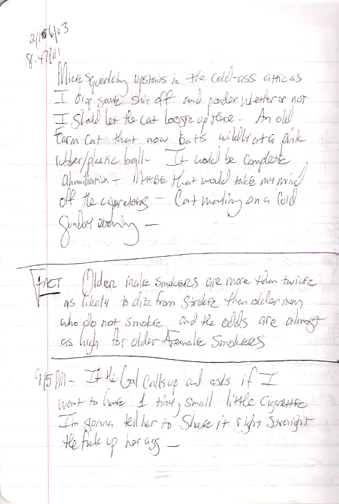 8:47PM
Mice squeaking upstairs in the cold-ass attic as
I drop some shit off and ponder whether or not
I should let the cat loose up there. An old
farm cat that now bats wildly at a pink
rubber/plastic ball - It would be complete
annihilation - Maybe that would take my mind
off the cigarettes - Cat hunting on a cold
Sunday evening -
FACT Older male smokers are more than twice
as likely to die from stroke than older men
who do not smoke, and the odds are almost
as high for older female smokers
PM - If the Gal calls up and asks if I
want to have 1 tiny, small little cigarette
I'm gonna tell her to shove it right straight
the fuck up her ass -